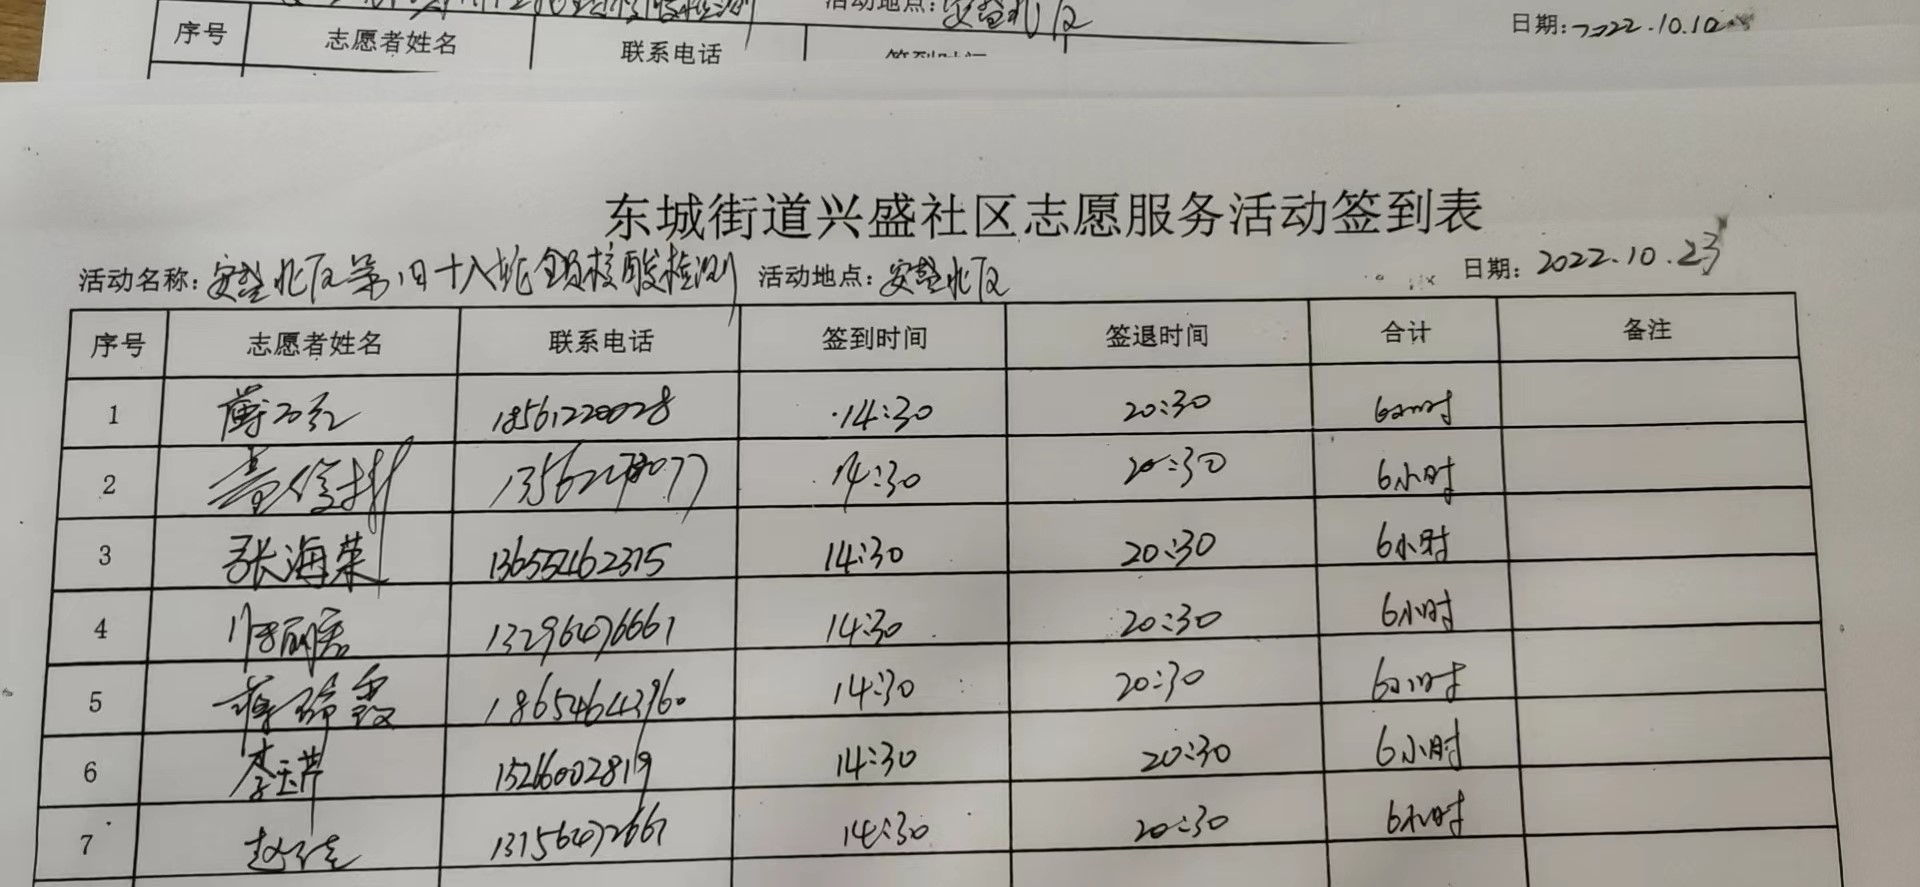 活动地点:安盛北区 日期:2022.10.10
序号 志愿者姓名 联系电话 签到时间
东城街道兴盛社区志愿服务活动签到表
活动名称:安盛北区第旧十八轮全员核酸检测 活动地点:安盛北区 日期:2022.10.23
序号 志愿者姓名 联系电话 签到时间 签退时间 合计 备注
1 18561220028 14:30 20:30 6小时
2 14:30 20:30 6小时
3 张海荣 13655462315 14:30 20:30 6小时
4 14:30 20:30 6小时
5 18654643960 14:30 20:30 6小时
6 李玉芹 15266002819 14:30 20:30 6小时
7 14:30 20:30 6小时